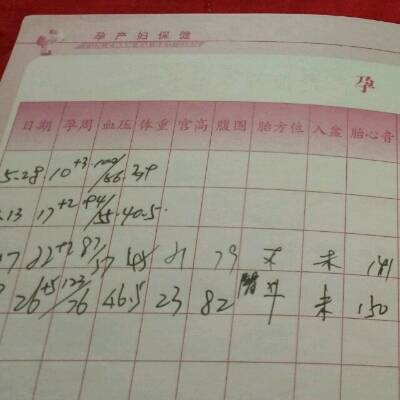 孕产妇保健
孕
日期 孕周 血压 体重 宫高 腹围 胎方位 入盆 胎心音
5.28. 10+3 100/56 39
.13 17+2 94/55 40.5
7 22+2 87/57 45 21 79 未 141
26+5 123/76 46.5 23 82 未 150